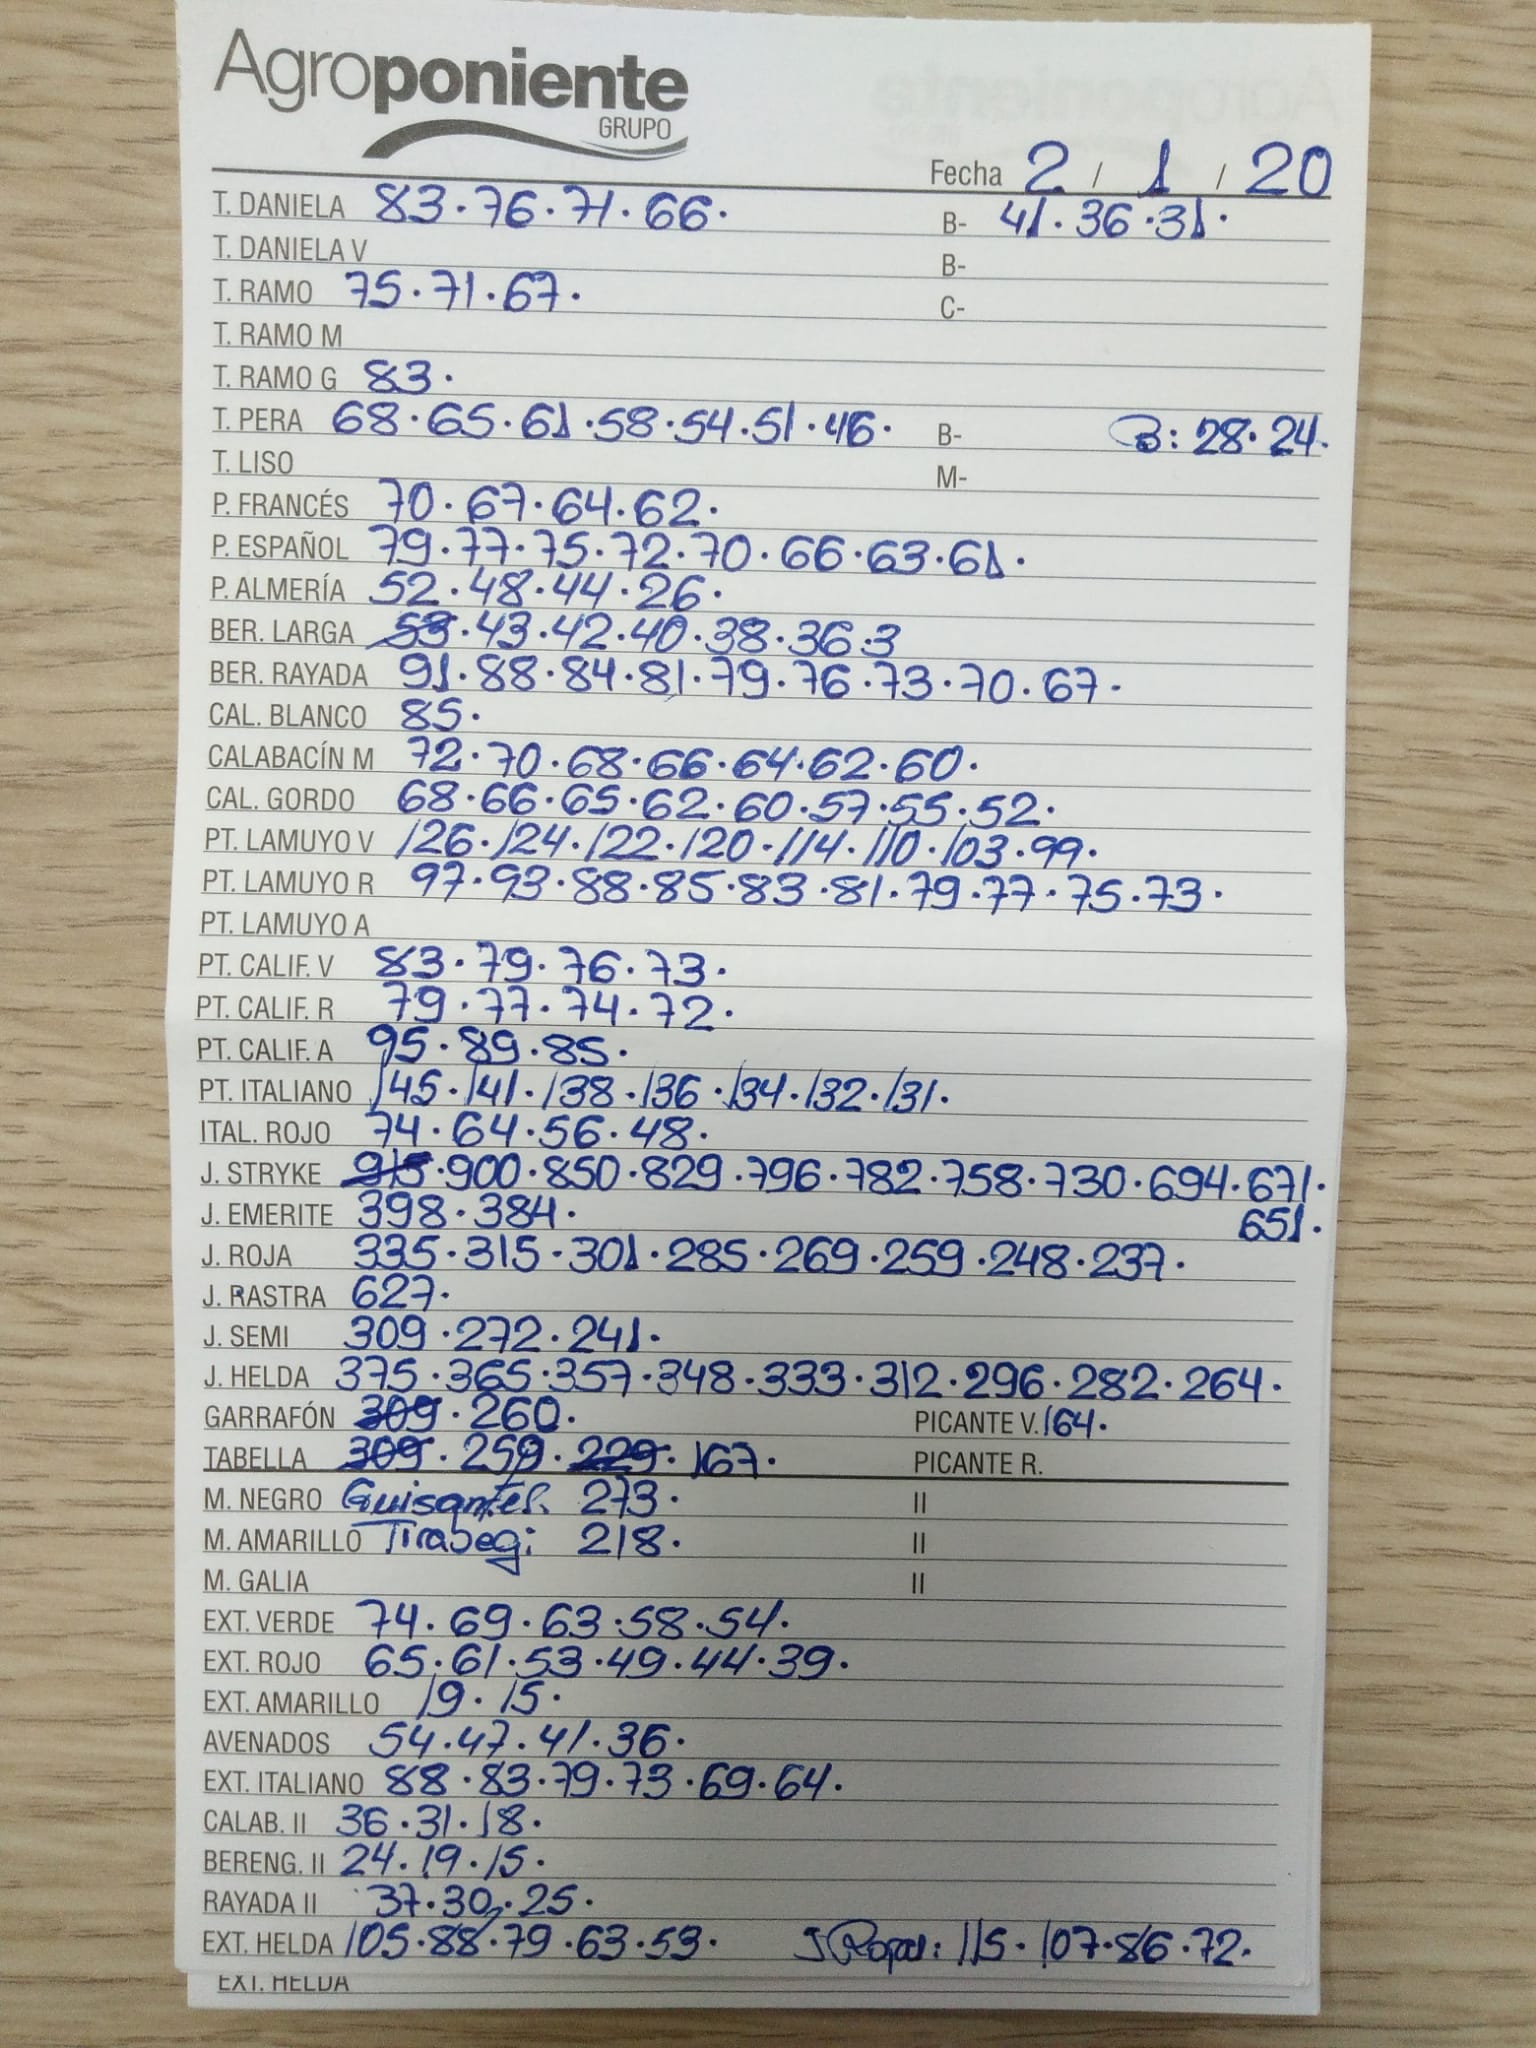 Agroponiente
GRUPO
Fecha 2 / 1 / 20
T. DANIELA 83·76·71·66· B- 41·36·31·
T. DANIELA V B-
T. RAMO 75·71·67· C-
T. RAMO M
T. RAMO G 83·
T. PERA 68·65·61·58·54·51·46· B- B: 28·24·
T. LISO M-
P. FRANCÉS 70·67·64·62·
P. ESPAÑOL 79·77·75·72·70·66·63·61·
P. ALMERÍA 52·48·44·26·
BER. LARGA 53·43·42·40·38·36·3
BER. RAYADA 91·88·84·81·79·76·73·70·67·
CAL. BLANCO 85·
CALABACÍN M 72·70·68·66·64·62·60·
CAL. GORDO 68·66·65·62·60·57·55·52·
PT. LAMUYO V 126·124·122·120·114·110·103·99·
PT. LAMUYO R 97·93·88·85·83·81·79·77·75·73·
PT. LAMUYO A
PT. CALIF. V 83·79·76·73·
PT. CALIF. R 79·77·74·72·
PT. CALIF. A 95·89·85·
PT. ITALIANO 145·141·138·136·134·132·131·
ITAL. ROJO 74·64·56·48·
J. STRYKE 915·900·850·829·796·782·758·730·694·671·
J. EMERITE 398·384· 651·
J. ROJA 335·315·301·285·269·259·248·237·
J. RASTRA 627·
J. SEMI 309·272·241·
J. HELDA 375·365·357·348·333·312·296·282·264·
GARRAFÓN 309·260· PICANTE V. 164·
TABELLA 309·259·229·167· PICANTE R.
M. NEGRO Guisantes 273· II
M. AMARILLO Tirabeqi 218· II
M. GALIA II
EXT. VERDE 74·69·63·58·54·
EXT. ROJO 65·61·53·49·44·39·
EXT. AMARILLO 19·15·
AVENADOS 54·47·41·36·
EXT. ITALIANO 88·83·79·73·69·64·
CALAB. II 36·31·18·
BERENG. II 24·19·15·
RAYADA II 37·30·25·
EXT. HELDA 105·88·79·63·53· J Ropa: 115·107·86·72·
EXT. HELDA